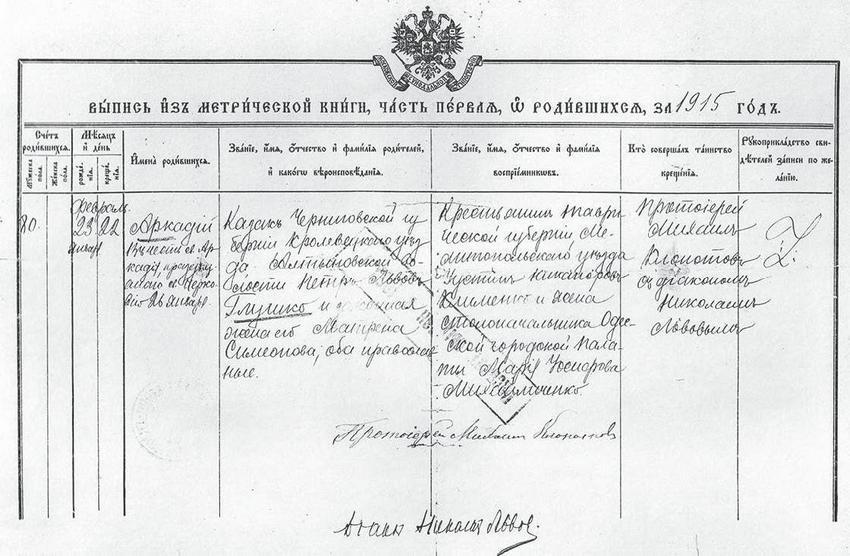 ВЫПИСЬ ИЗЪ МЕТРИЧЕСКОЙ КНИГИ, ЧАСТЬ ПЕРВАЯ, Ѿ РОДИВШИХСЯ, ЗА 1915 ГОДЪ.
Счетъ родившихся.
Мужеска пола.
Женска пола.
Мѣсяцъ и день
рожденія.
крещенія.
Имена родившихся.
Званіе, имя, отчество и фамилія родителей,
и какогω вѣроисповѣданія.
Званіе, имя, отчество и фамилія
воспріемниковъ.
Кто совершалъ таинство
крещенія.
Рукоприкладство сви-
дѣтелей записи по же-
ланію.
80.
Февраль
23
22
Январ
Аркадій
въ честь св. Ар-
кадія,
Казакъ Черниговской гу-
берніи Кролевецкаго уѣз-
да
Петръ Львовъ
Глушко и законная
жена его Матрена
Симеонова, оба православ-
ные.
Крестьянинъ Таври-
ческой губерніи Ме-
литопольскаго уѣзда
Устинъ Никифоровъ
Клименко и жена
столоначальника Одес-
ской городской Пала-
ты Марія
Протоіерей
Михаилъ
Клопотовъ
съ діакономъ
Николаемъ
Львовымъ
Протоіерей Михаилъ Клопотовъ
Діаконъ Николай Львовъ.